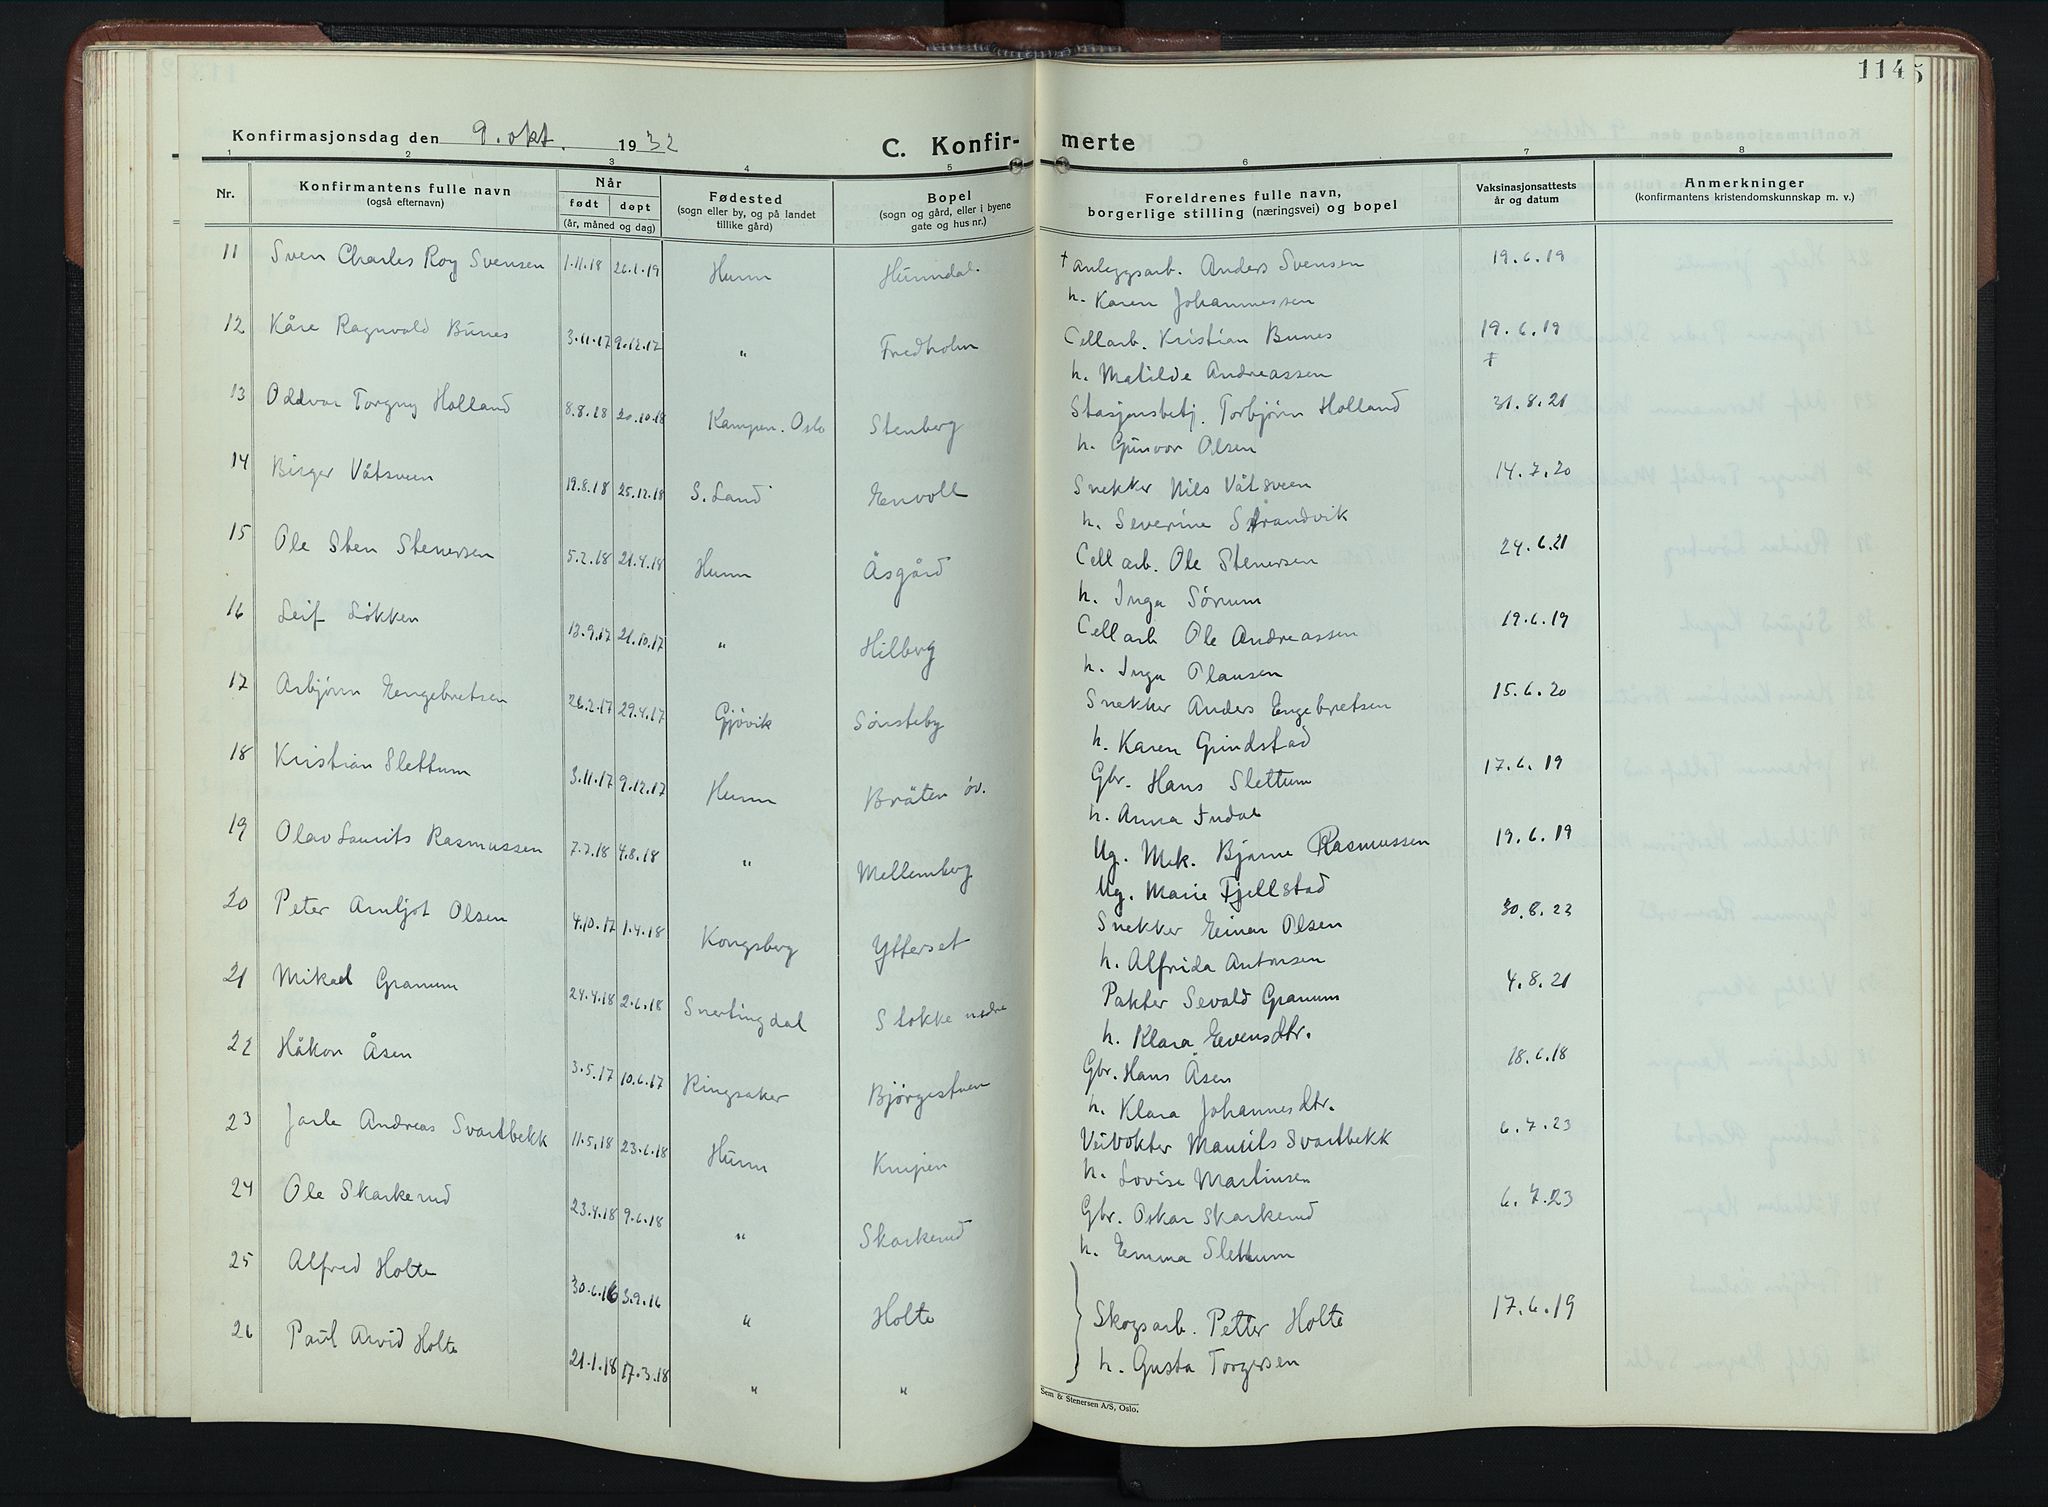 114
5
Konfirmasjonsdag den 9. okt. 1932
C. Konfir- merte
1 2 3 4 5 6 7 8
Nr. Konfirmantens fulle navn (også efternavn) Når født døpt (år, måned og dag) Fødested (sogn eller by, og på landet tillike gård) Bopel (sogn og gård, eller i byene gate og hus nr.) Foreldrenes fulle navn, borgerlige stilling (næringsvei) og bopel Vaksinasjonsattests år og datum Anmerkninger (konfirmantens kristendomskunnskap m. v.)
11 Sven Charles Roy Svensen 1.11.18 26.1.19 Hunn Hunndal. † anleggsarb. Anders Svensen 19.6.19
h. Karen Johannessen
12 Kåre Ragnvald Bunes 3.11.17 9.12.17 " Fredholm Cellarb. Kristian Bunes 19.6.19
h. Matilde Andreassen
13 Oddvar Torgny Holland 8.8.18 20.10.18 Kampen. Oslo Stenberg Stasjonsbetj. Torbjørn Holland 31.8.21
h. Gunvor Olsen
14 Birger Våtsveen 19.8.18 25.12.18 S. Land Envoll Snekker Nils Våtsveen 14.7.20
h. Severine Strandvik
15 Ole Sten Stenersen 5.2.18 21.4.18 Hunn Åsgård Cellarb. Ole Stenersen 24.6.21
h. Inga Sørum
16 Leif Løkken 13.9.17 21.10.17 " Hilberg Cellarb Ole Andreassen 19.6.19
h. Inga Olausen
17 Asbjørn Engebretsen 26.2.17 29.4.17 Gjøvik Sønsteby Snekker Anders Engebretsen 15.6.20
h. Karen Grindstad
18 Kristian Slettum 3.11.17 9.12.17 Hunn Bråten øv. Gbr. Hans Slettum 17.6.19
h. Anna Indal
19 Olav Laurits Rasmussen 7.7.18 4.8.18 " Mellemberg Ug. Mek. Bjarne Rasmussen 19.6.19
Ug. Marie Fjellstad
20 Peter Arnljot Olsen 4.10.17 1.4.18 Kongsberg Ytterset Snekker Einar Olsen 30.8.23
h. Alfrida Antonsen
21 Mikael Granum 24.4.18 2.6.18 Snertingdal Stokke nedre Pakter Sevald Granum 4.8.21
h. Klara Evensdtr.
22 Håkon Åsen 3.5.17 10.6.17 Ringsaker Bjørgestuen Gbr. Hans Åsen 18.6.18
h. Klara Johannesdtr.
23 Jarle Andreas Svartbekk 11.5.18 23.6.18 Hunn Knipen Veivokter Maurits Svartbekk 6.7.23
h. Lovise Martinsen
24 Ole Skarkerud 23.4.18 9.6.18 " Skarkerud Gbr. Oskar Skarkerud 6.7.23
h. Emma Slettum
25 Alfred Holte 30.6.16 3.9.16 " Holte Skogsarb. Petter Holte 17.6.19
26 Paul Arvid Holte 21.1.18 17.3.18 " " h. Gusta Torgersen
Sem & Stenersen A/S, Oslo.